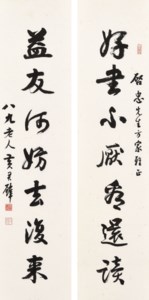 好書不厭看還讀
啟忠先生方家雅正
益友何妨去復來
八九老人黃君璧